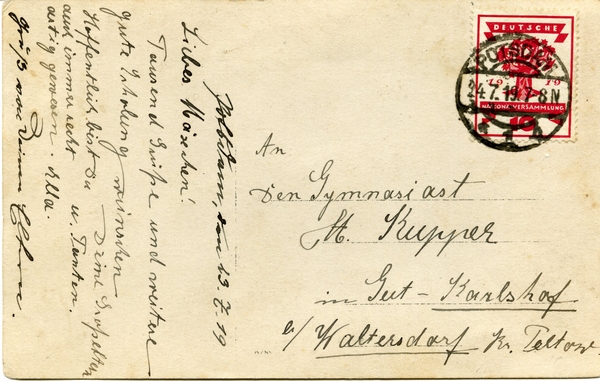 Potsdam, den 23.7.19
Liebes Mäxchen!
Tausend Grüße und weitere
gute Erholung wünschen
Deine Großeltern
u. Tanten.
Hoffentlich bist Du
auch immer recht
artig gewesen.
Gruß von Deinen Eltern.
DEUTSCHE
19 19
NATIONALVERSAMMLUNG
10
POTSDAM
24.7.19.7-8N
An
Den Gymnasiast
M. Kupper
in Gut-Karlshof
b/Waltersdorf Kr. Teltow